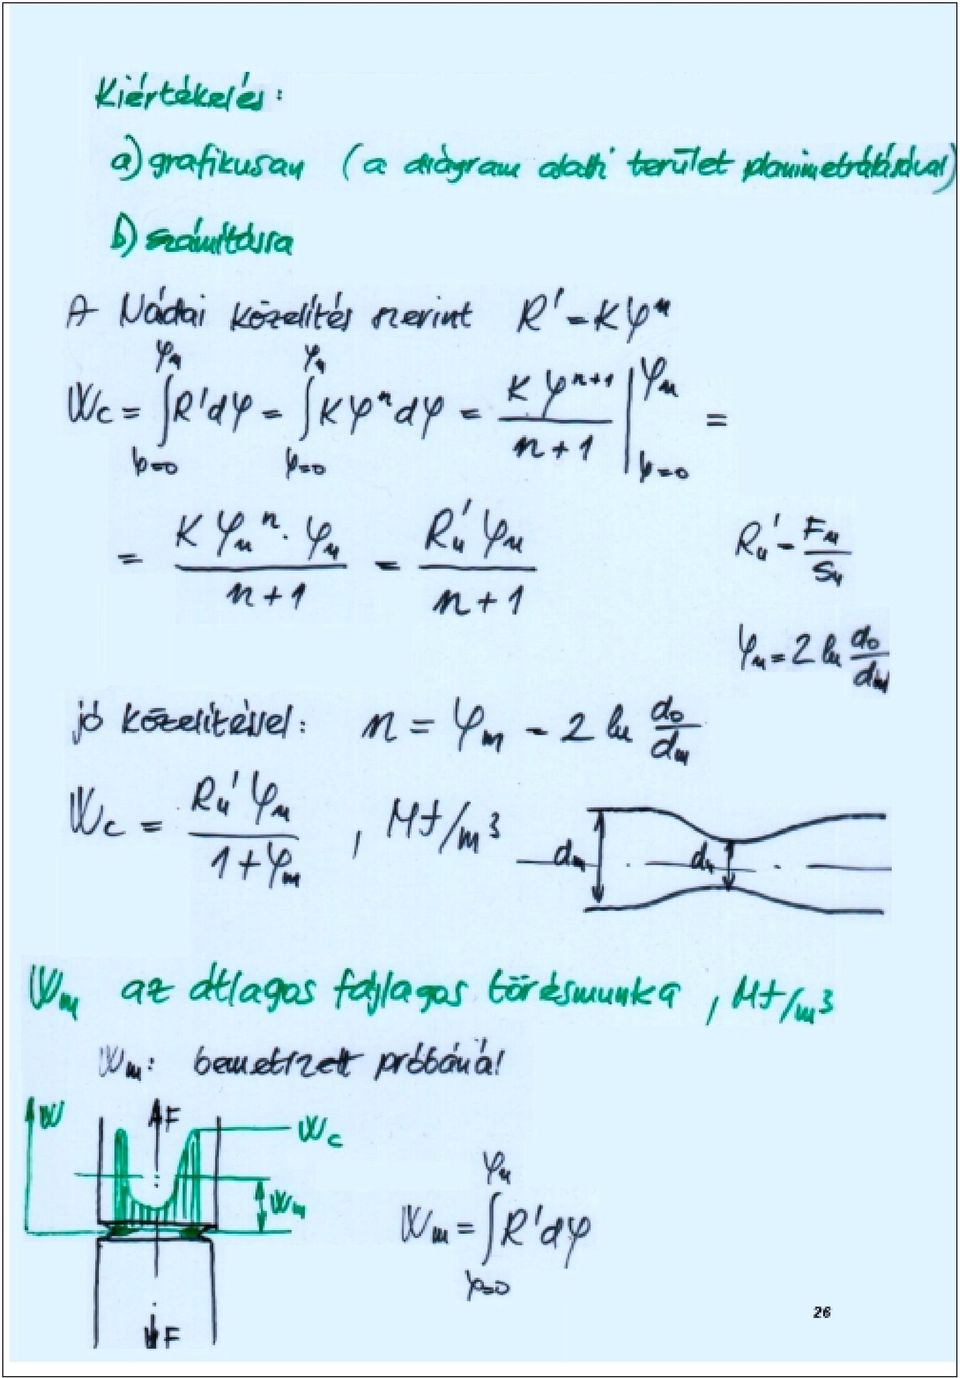 Kiértékelés:
a) grafikusan (a diagram alatti terület planimetrálásával)
b) számításra
A Nádai közelítés szerint R' = Kφⁿ
W_c = ∫_{φ=0}^{φ_u} R'dφ = ∫_{φ=0}^{φ_u} Kφⁿdφ = Kφⁿ⁺¹/(n+1) |_{φ=0}^{φ_u} =
= Kφ_uⁿ·φ_u/(n+1) = R_u'φ_u/(n+1)
R_u' = F_u/S_u
φ_u = 2 ln d_0/d_u
jó közelítéssel: n = φ_m = 2 ln d_0/d_m
W_c = R_u'φ_u/(1+φ_m) , MJ/m³
d_m d_u
W_m az átlagos fajlagos törésmunka, MJ/m³
W_m: bemetszett próbánál
W F W_c
W_m
W_m = ∫_{φ=0}^{φ_u} R'dφ
F
26